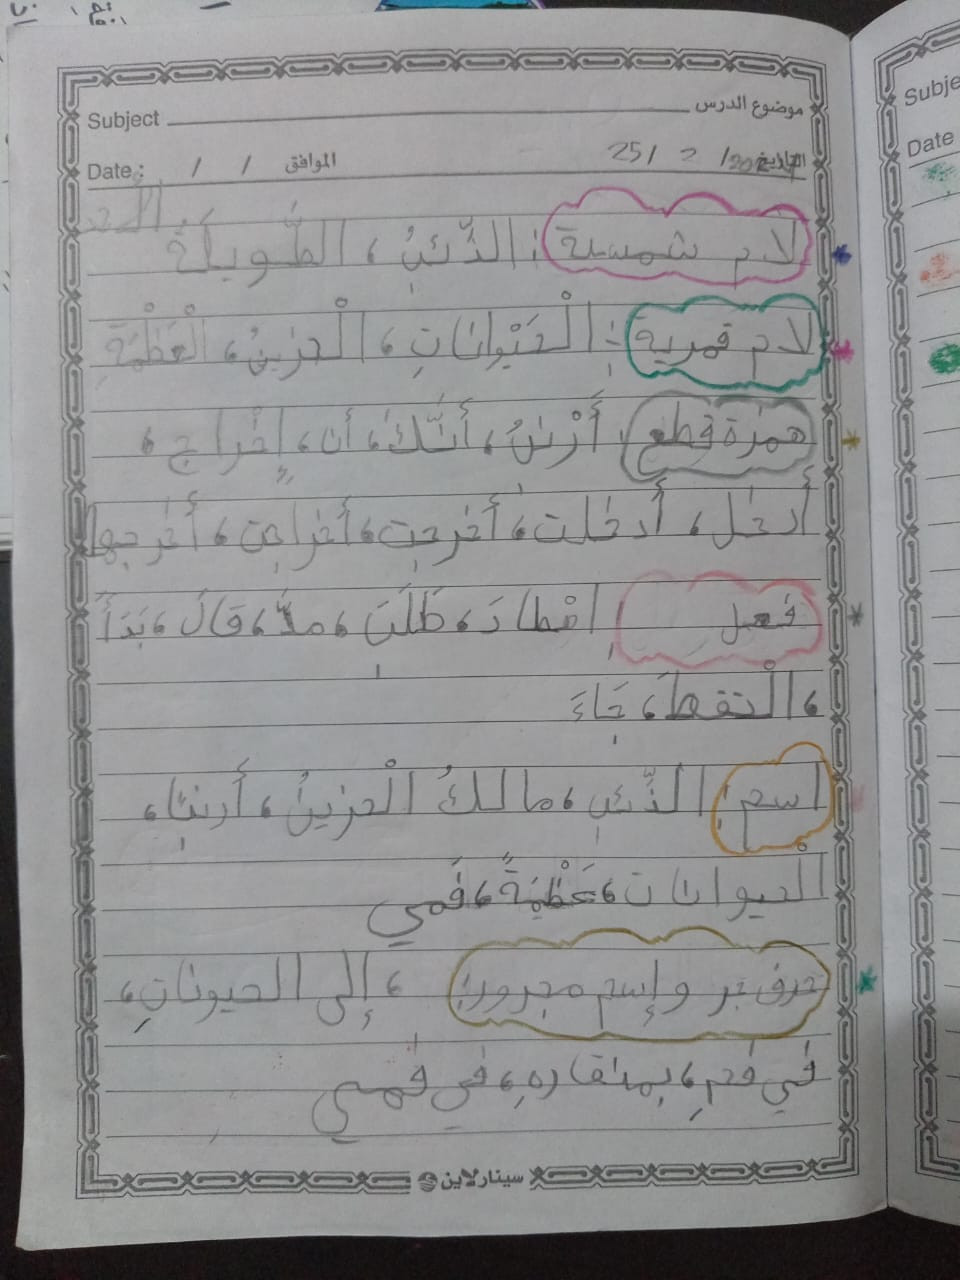 موضوع الدرس Subject
التاريخ 25/ 2 / الموافق / / Date :
لام شمسية : الذّئبُ ، الطّويلَة
لام قمرية : الْحَيْوانات ، الْحزينُ ، الْعَظْمَةِ
همزة قطع أَرْنبُ ، أنّكَ ، أن ، إخراج ،
أدخل ، أدخلت ، أخرجت ، أخراجت ، أخرجها
فعل اصْطادَ ، طَلَبَ ، مدَّ ، قالَ ، بَدَأَ
، الْتقطَ ، جَاءَ
اسم : الذّئبِ ، مالكُ الْحزينُ ، أرنبًا ،
الحيوانات ، عَظْمَةً ، فَمي
حرف جر وإسم مجرور : ، إلى الحيوناتِ ،
في فمِ ، بمنقارهِ ، في فمي
سينارلاين
Subje
Date